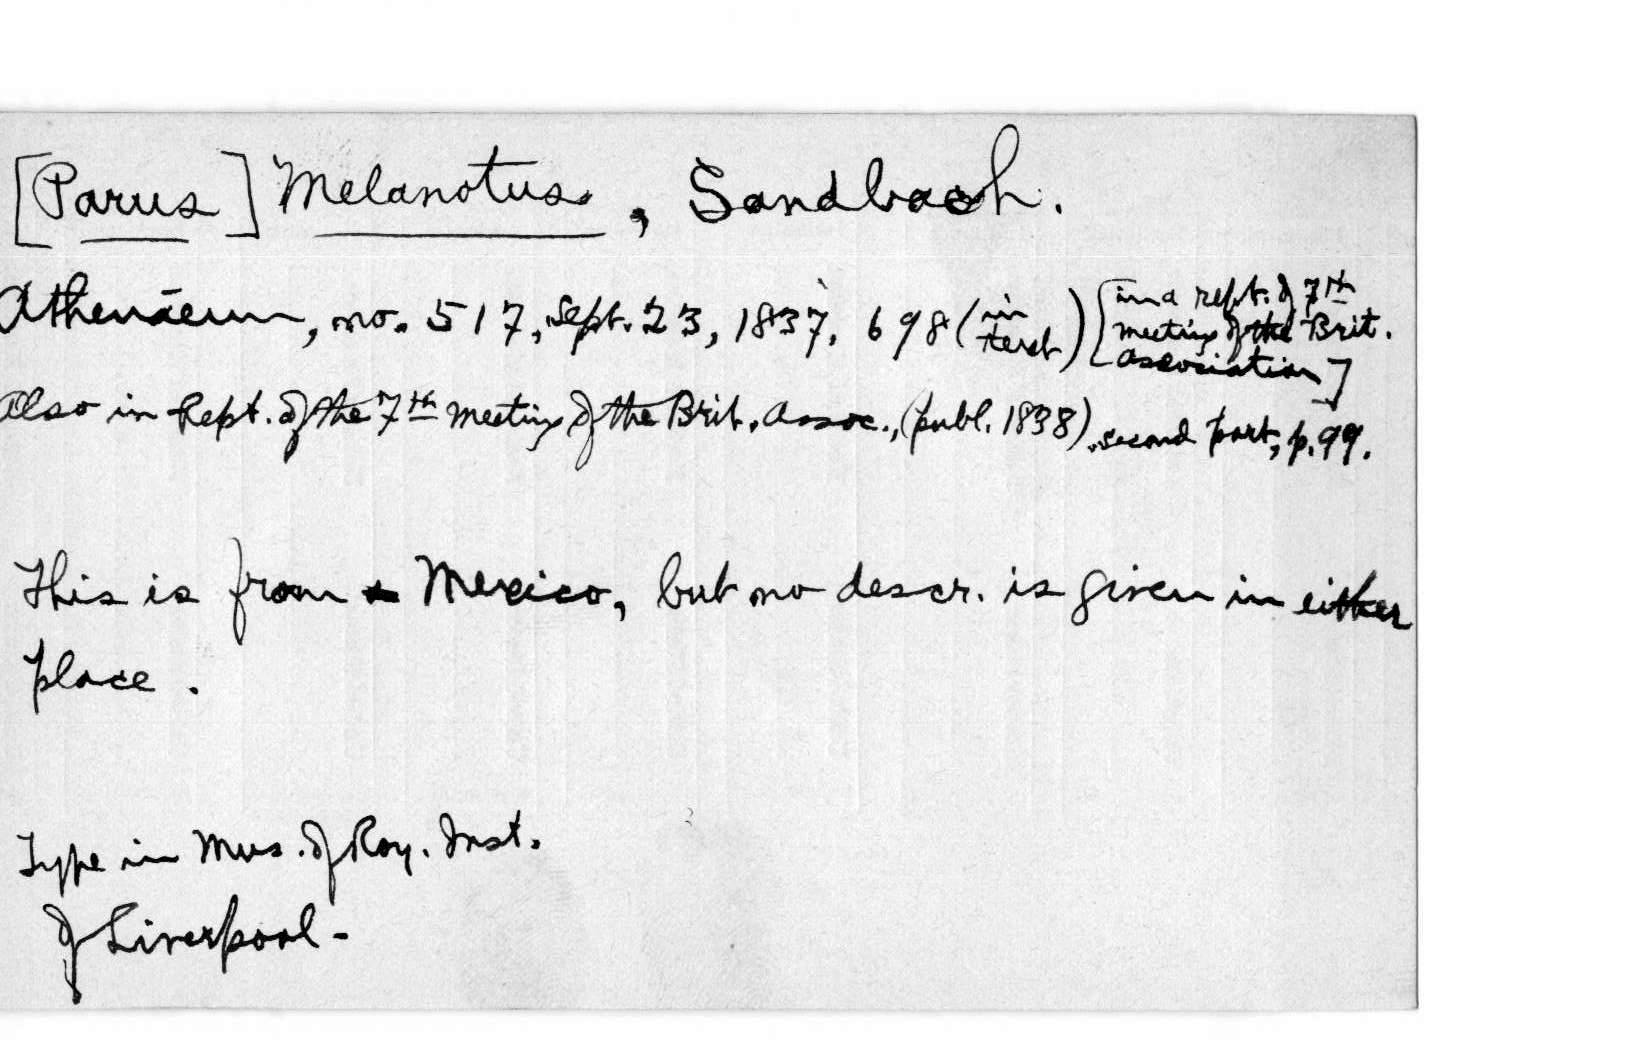 [Parus] Melanotus, Sandbach.
Athenaeum, no. 517, Sept. 23, 1837, 698 (in text) [in a rept. of 7th meeting of the Brit. Association]
Also in Rept. of the 7th meeting of the Brit. Assoc., (publ. 1838), second part, p. 99.
This is from Mexico, but no descr. is given in either
place.
Type in Mus. of Roy. Inst.
of Liverpool-